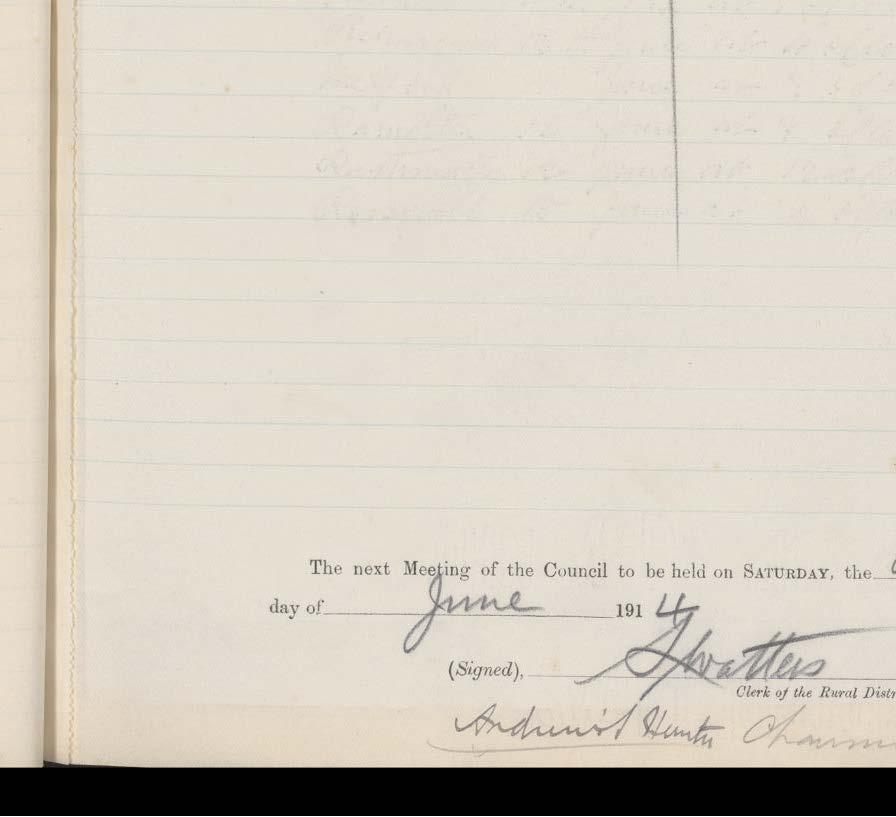 The next Meeting of the Council to be held on SATURDAY, the
day of June 1914
(Signed), Watters
Clerk of the Rural Distr
Hunter Chairm